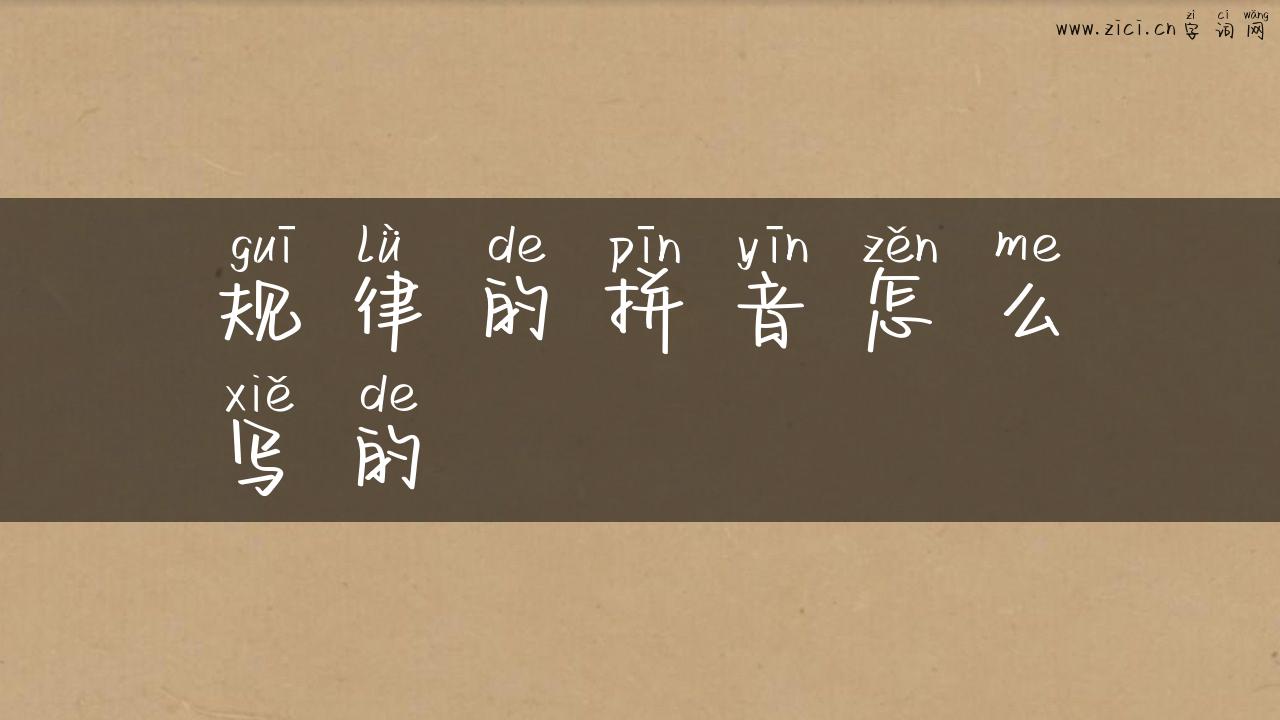 zì cí wǎng
www.zici.cn 字 词 网
guī lǜ de pīn yīn zěn me
规 律 的 拼 音 怎 么
xiě de
写 的